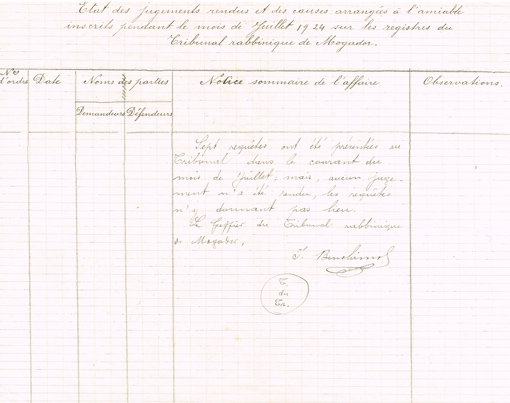 Etat des jugements rendus et des causes arrangées à l'amiable
inscrits pendant le mois de Juillet 1924 sur les registres du
Tribunal rabbinique de Mogador.
Nos d'ordre
Date
Noms des parties
Demandeurs
Défendeurs
Notice sommaire de l'affaire
Observations.
Sept requêtes ont été présentées au
Tribunal dans le courant du
mois de Juillet, mais, aucun juge-
ment n'a été rendu, les requêtes
n'y donnant pas lieu.
Le Greffier du Tribunal rabbinique
de Mogador,